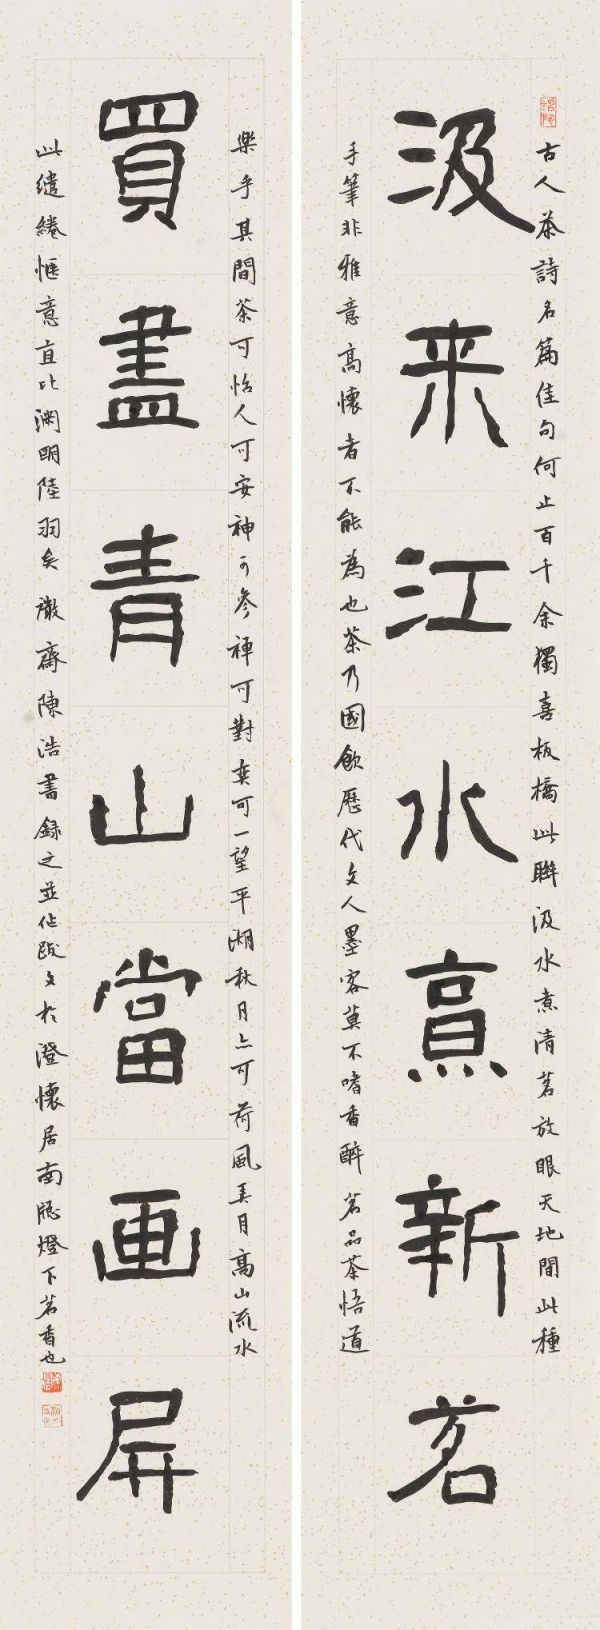 汲来江水烹新茗
買盡青山當画屏
古人茶詩名篇佳句何止百千余獨喜板橋此聯汲水煮清茗放眼天地間此種
手筆非雅意高懷者不能為也茶乃國飲歷代文人墨客莫不嗜香醉茗品茶悟道
樂乎其間茶可怡人可安神可參禅可對弈可一望平湖秋月亦可荷風弄月高山流水
此缱綣惬意直比渊明陸羽矣 齋陳浩書録之並作跋文於澄懷居南牕燈下茗香也